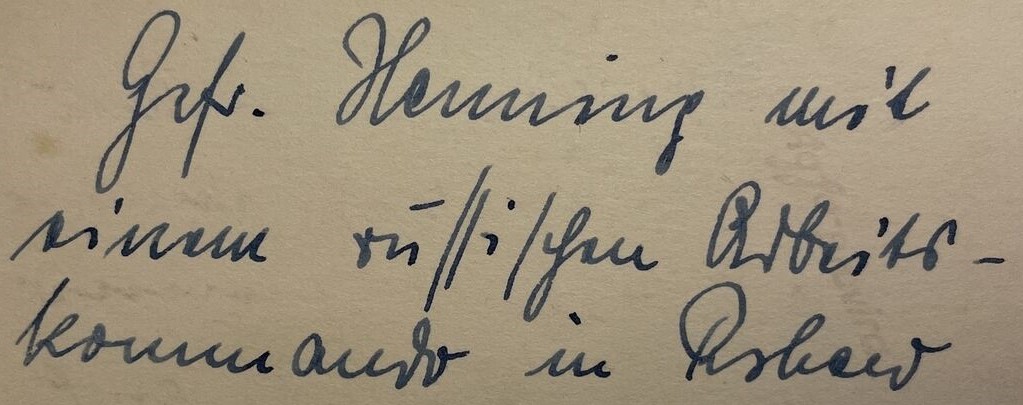 Gefr. Henning mit
einem russischen Arbeits-
kommando in Rshew